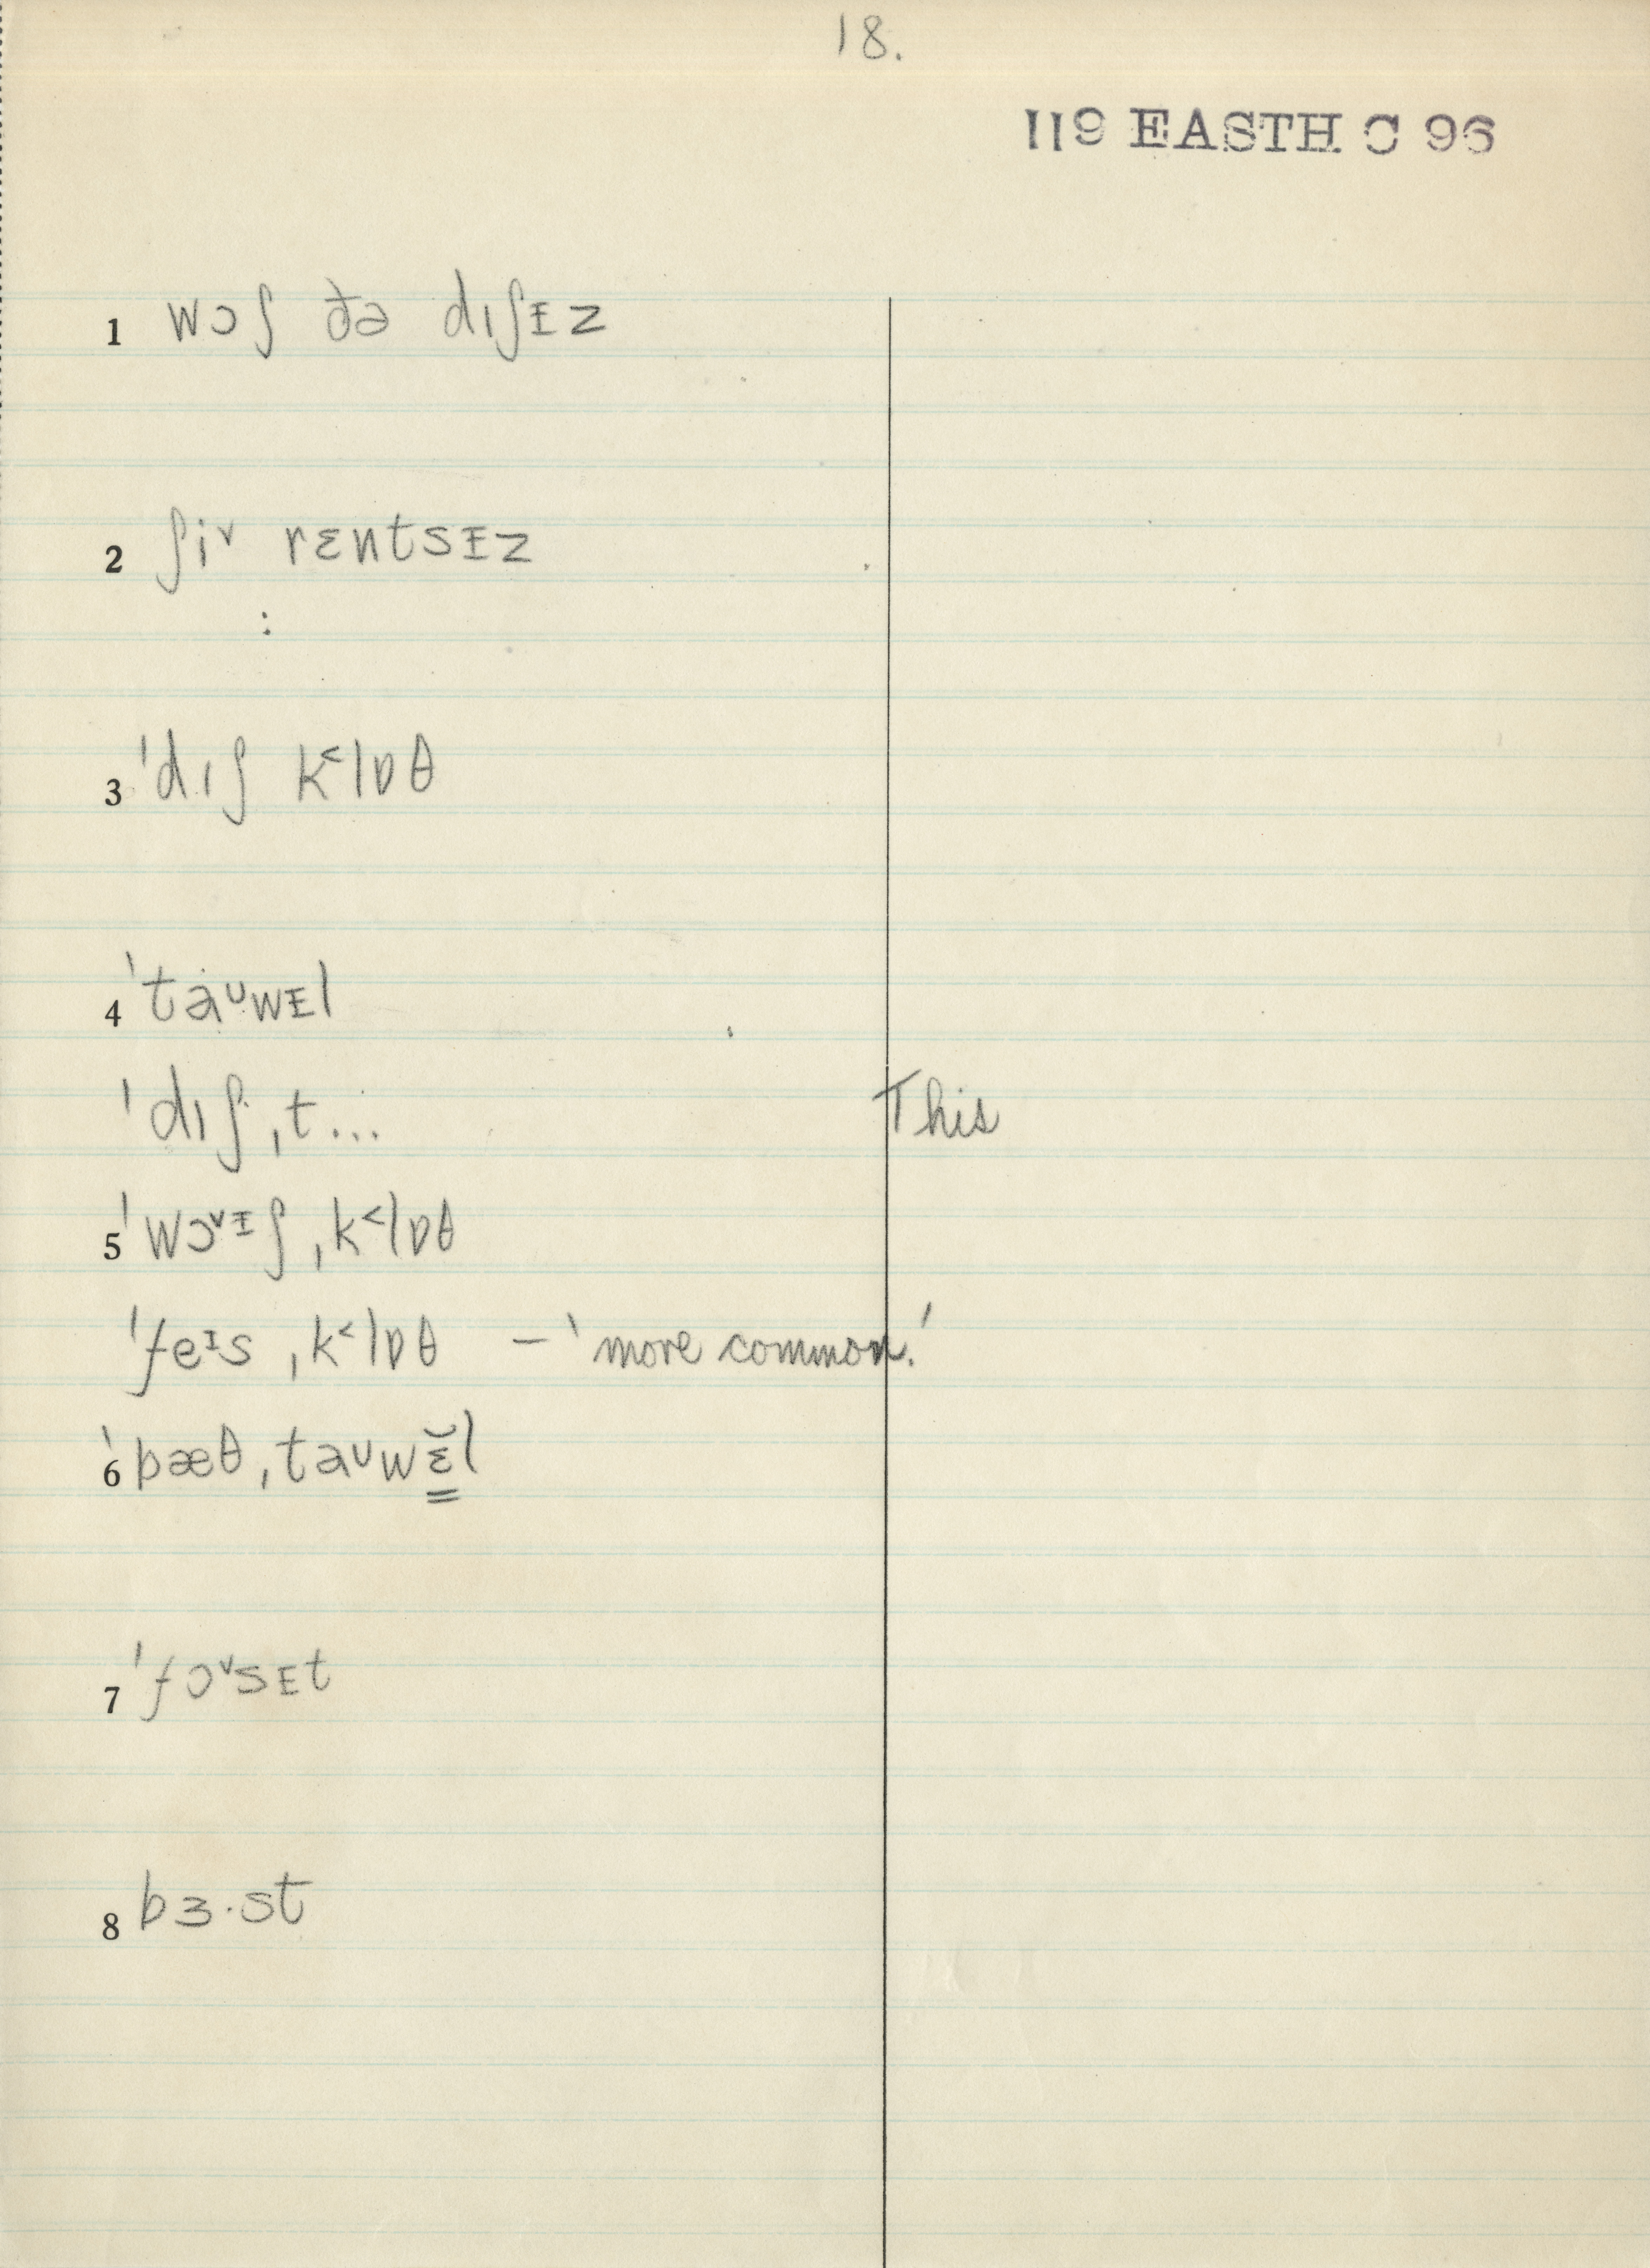 18.
119 EASTH C 96
1 wɔʃ ðə dıʃɪz
2 ʃi˅ rɛntsɪz
:
3 ˈdıʃ k˂lɒθ
4 ˈtaᶷwɪl
ˈdıʃˌt... This
5 ˈwɔ˅ᶦʃˌk˂lɒθ
ˈfeᶦsˌk˂lɒθ – 'more common.'
6 ˈbæθˌtaᶷwɛ̳̆l
7 ˈfɔ˅sɪt
8 bɜ·st